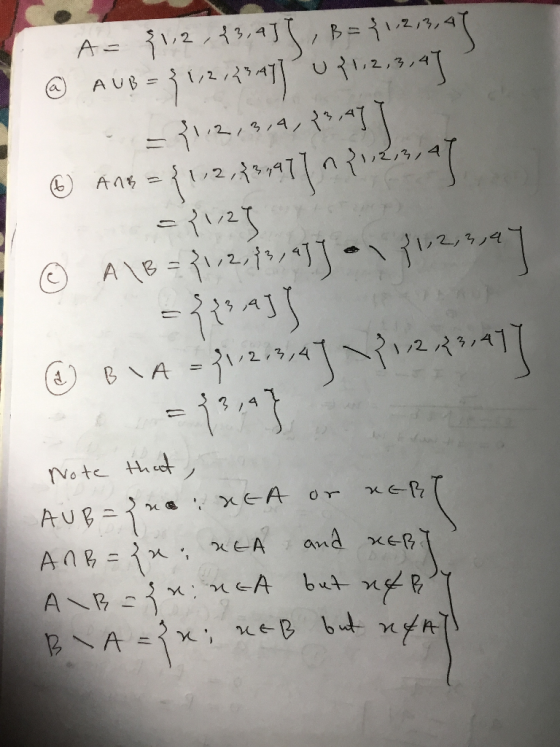 A = {1,2,{3,4}}, B = {1,2,3,4}
(a) A∪B = {1,2,{3,4}} ∪ {1,2,3,4}
= {1,2,3,4,{3,4}}
(b) A∩B = {1,2,{3,4}} ∩ {1,2,3,4}
= {1,2}
(c) A\B = {1,2,{3,4}} \ {1,2,3,4}
= {{3,4}}
(d) B\A = {1,2,3,4} \ {1,2,{3,4}}
= {3,4}
Note that,
A∪B = {x : x∈A or x∈B}
A∩B = {x : x∈A and x∈B}
A\B = {x : x∈A but x∉B}
B\A = {x : x∈B but x∉A}